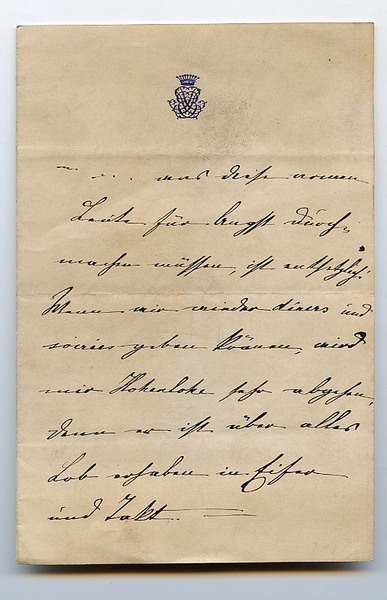 ~ . . . was diese armen
Leute für Angst durch-
machen müssen, ist entsetzlich.
Wenn wir wieder diners und
soirées geben können, wird
mir Hohenlohe sehr abgehen,
denn er ist über alles
Lob erhaben in Eifer
und Takt. —